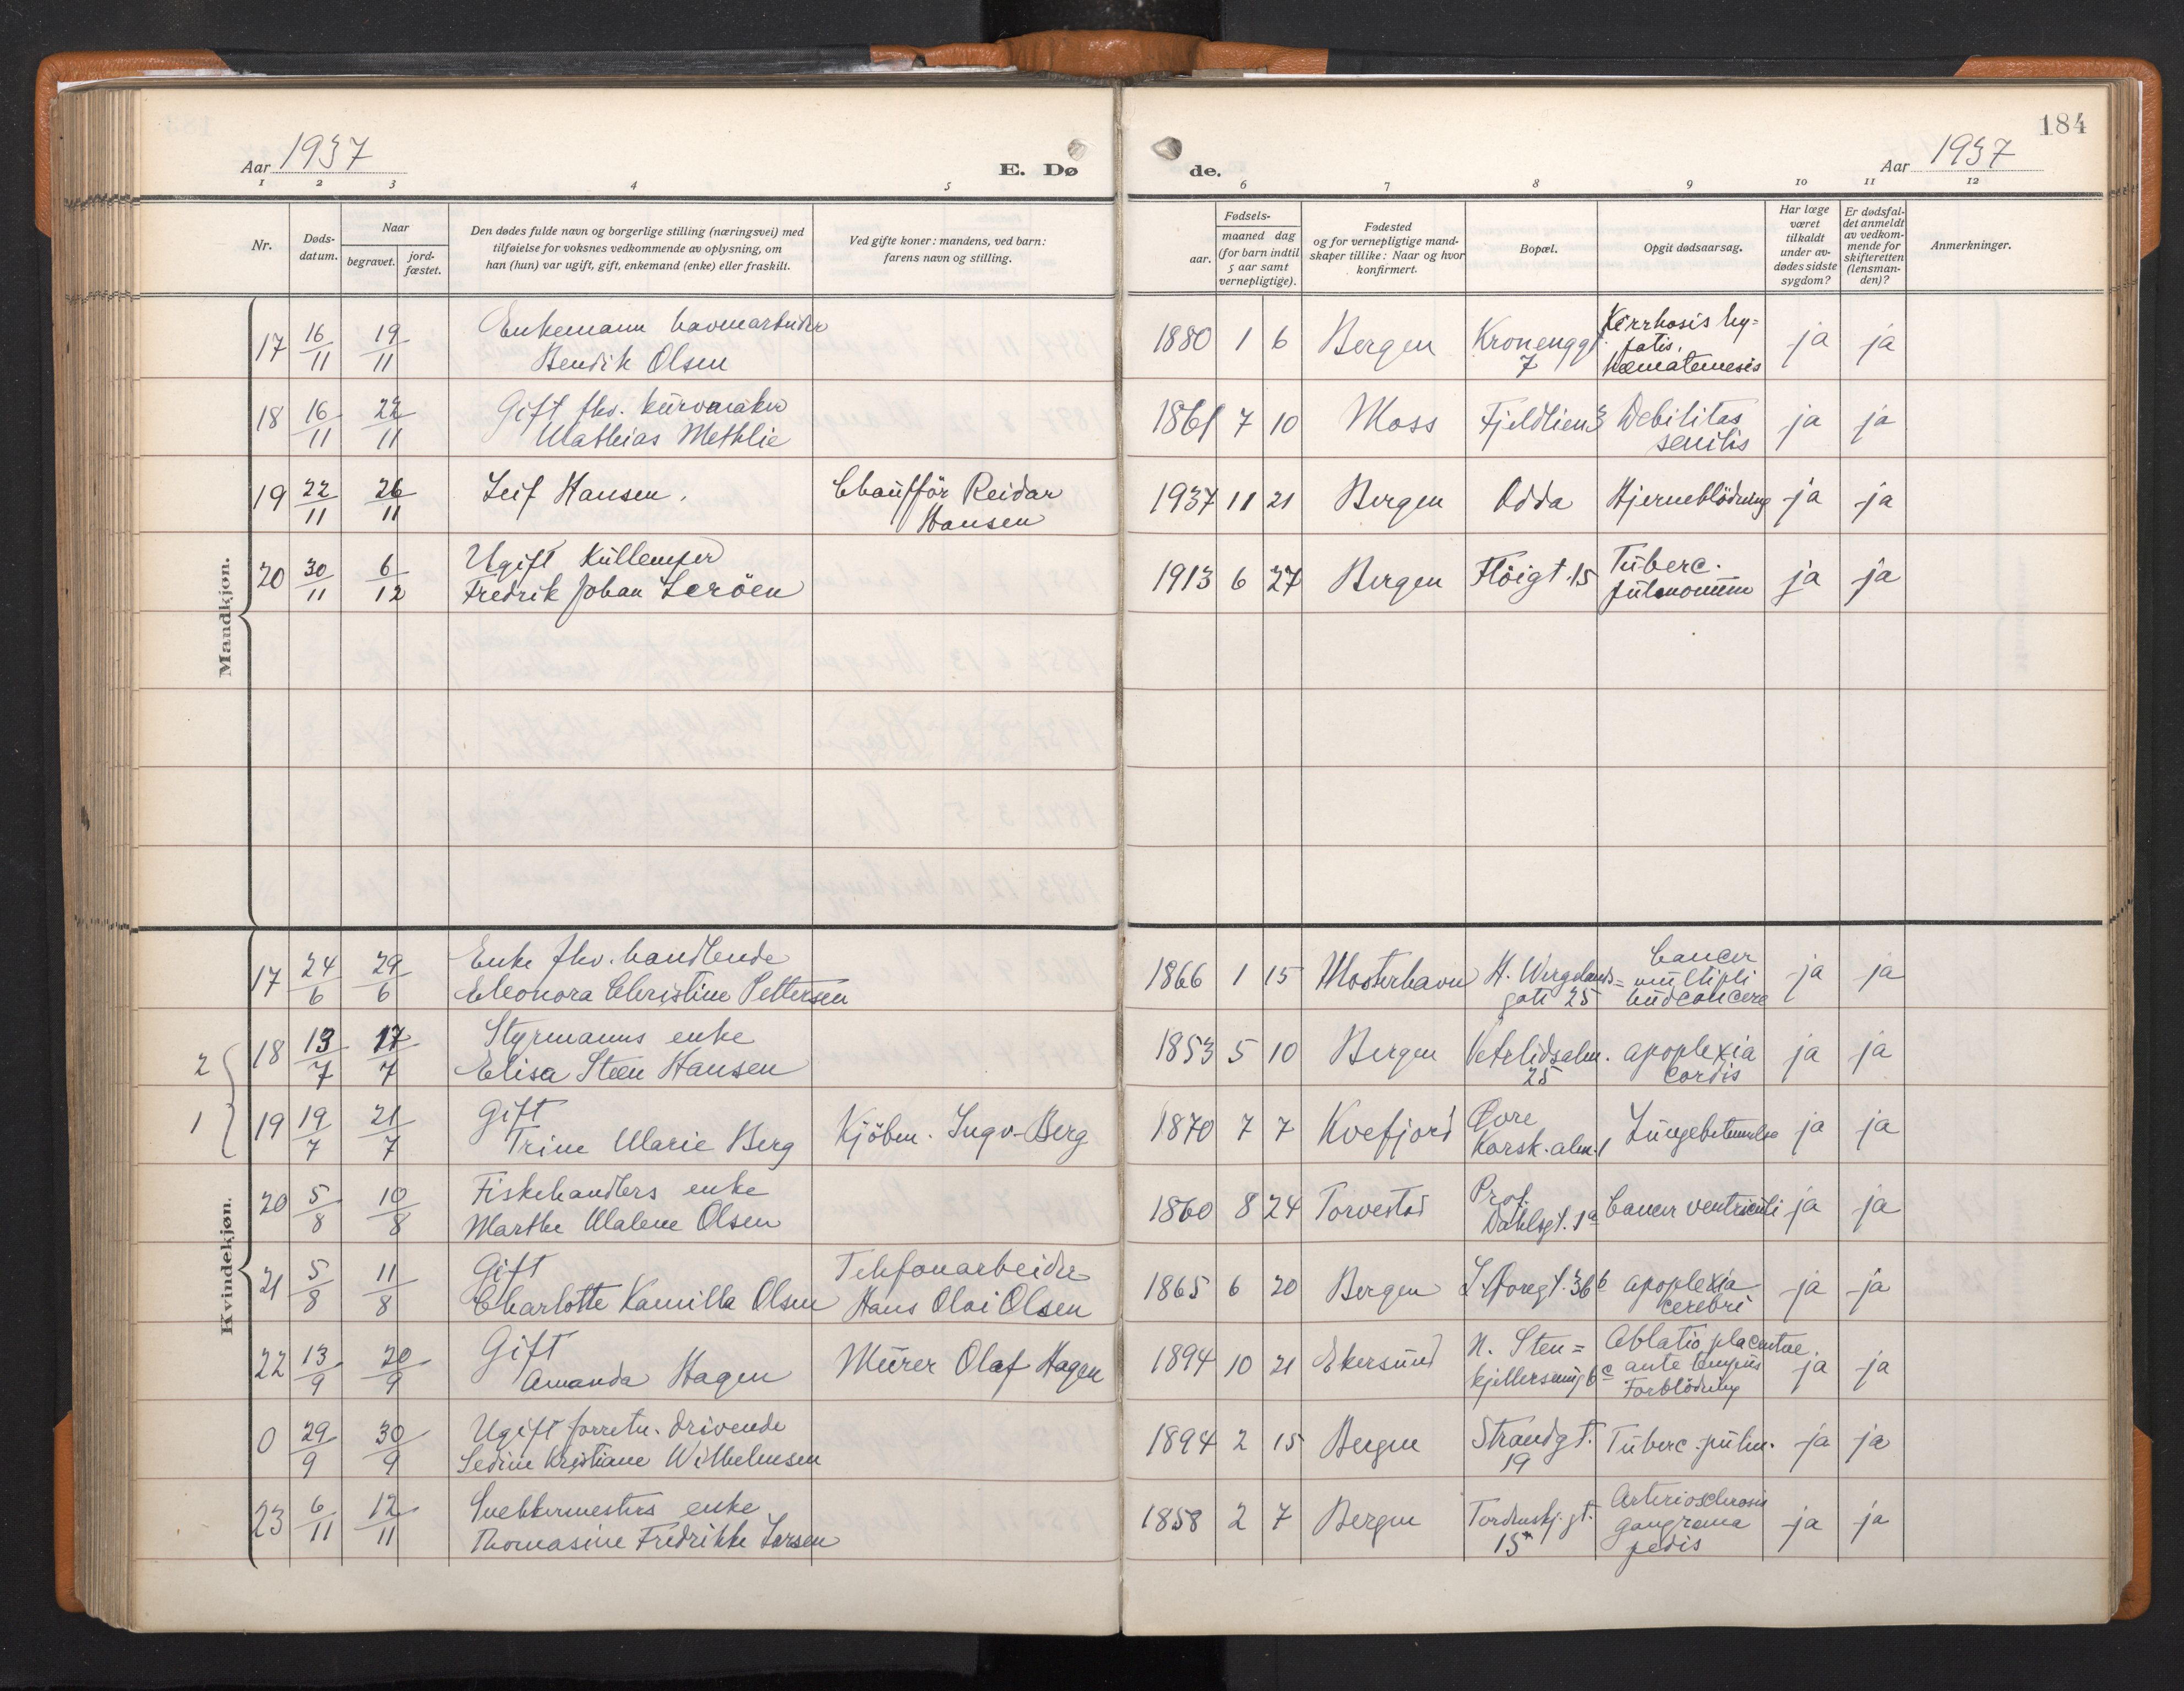 184
Aar 1937
E. Dø
de.
Aar 1937
1 2 3 4 5 6 7 8 9 10 11 12
Nr.
Døds-
datum.
Naar
begravet.
jord-
fæstet.
Den dødes fulde navn og borgerlige stilling (næringsvei) med
tilføielse for voksnes vedkommende av oplysning, om
han (hun) var ugift, gift, enkemand (enke) eller fraskilt.
Ved gifte koner: mandens, ved barn:
farens navn og stilling.
Fødsels-
aar.
maaned dag
(for barn indtil
5 aar samt
vernepligtige).
Fødested
og for vernepligtige mand-
skaper tillike: Naar og hvor
konfirmert.
Bopæl.
Opgit dødsaarsag.
Har læge
været
tilkaldt
under av-
dødes sidste
sygdom?
Er dødsfal-
det anmeldt
av vedkom-
mende for
skifteretten
(lensman-
den)?
Anmerkninger.
Mandkjøn.
17 16/11 19/11 Enkemann havnearbeider
Bendik Olsen
1880 1 6 Bergen Kronenggt. 7
Kirrhosis hy=
patis.
Hæmatemesis
ja ja
18 16/11 22/11 Gift fhv. kurvmaker
Mathias Methlie
1861 7 10 Moss Fjeldlien 3
Debilitas
senilis
ja ja
19 22/11 26/11 Leif Hansen.
Chaufför Reidar
Hansen
1937 11 21 Bergen Odda Hjerneblödning ja ja
20 30/11 6/12 Ugift Kullemper
Fredrik Johan Leröen
1913 6 27 Bergen Flöigt. 15
Tuberc.
pulmonum
ja ja
Kvindekjøn.
17 24/6 29/6 Enke fhv. handlende
Eleonora Christine Pettersen
1866 1 15 Mosterhavn
H. Wergelands=
gate 25
Cancer
multipli
hudcancere
ja ja
2
18 13/7 17/7 Styrmanns enke
Elisa Steen Hansen
1853 5 10 Bergen Vetrlidsalm.
25
apoplexia
cordis
ja ja
1
19 19/7 21/7 Gift
Trine Marie Berg
Kjöbm. Ingv. Berg
1870 7 7 Kvefjord
Øvre
Korsk. alm. 1
Lungebetennelse ja ja
20 5/8 10/8 Fiskehandlers enke
Marthe Malene Olsen
1860 8 24 Torvestad
Prof.
Dahlsgt. 1a
Cancer ventriculi ja ja
21 5/8 11/8 Gift
Charlotte Kamilla Olsen
Telefonarbeider
Hans Olai Olsen
1865 6 20 Bergen 36b
apoplexia
cerebri
ja ja
22 13/9 20/9 Gift
Amanda Hagen
Murer Olaf Hagen
1894 10 21 Ekersund
N. Sten=
kjellersmug 6c
Ablatio placentae
ante tempus
Forblödning
ja ja
0 29/9 30/9 Ugift forretn. drivende
Sedine Kristiane Wilhelmsen
1894 2 15 Bergen Strandgt.
19
Tuberc. pulm. ja ja
23 6/11 12/11 Snekkermesters enke
Thomasine Fredrikke Larsen
1858 2 7 Bergen Tordenskj. gt.
15
Arteriosclerosis
gangræna
pedis
ja ja